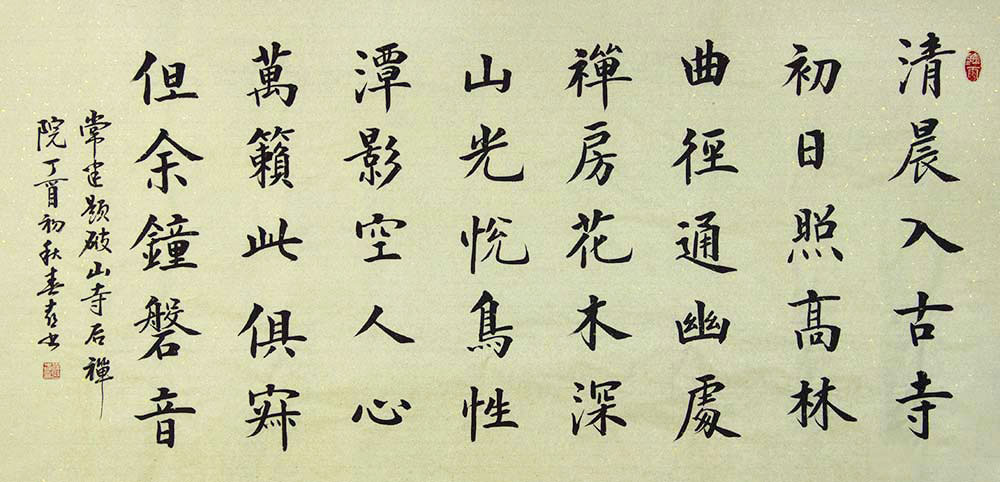 清晨入古寺
初日照髙林
曲徑通幽處
禪房花木深
山光悅鳥性
潭影空人心
萬籟此俱寂
但余鐘磐音
常建题破山寺后禪
院丁酉初秋春书